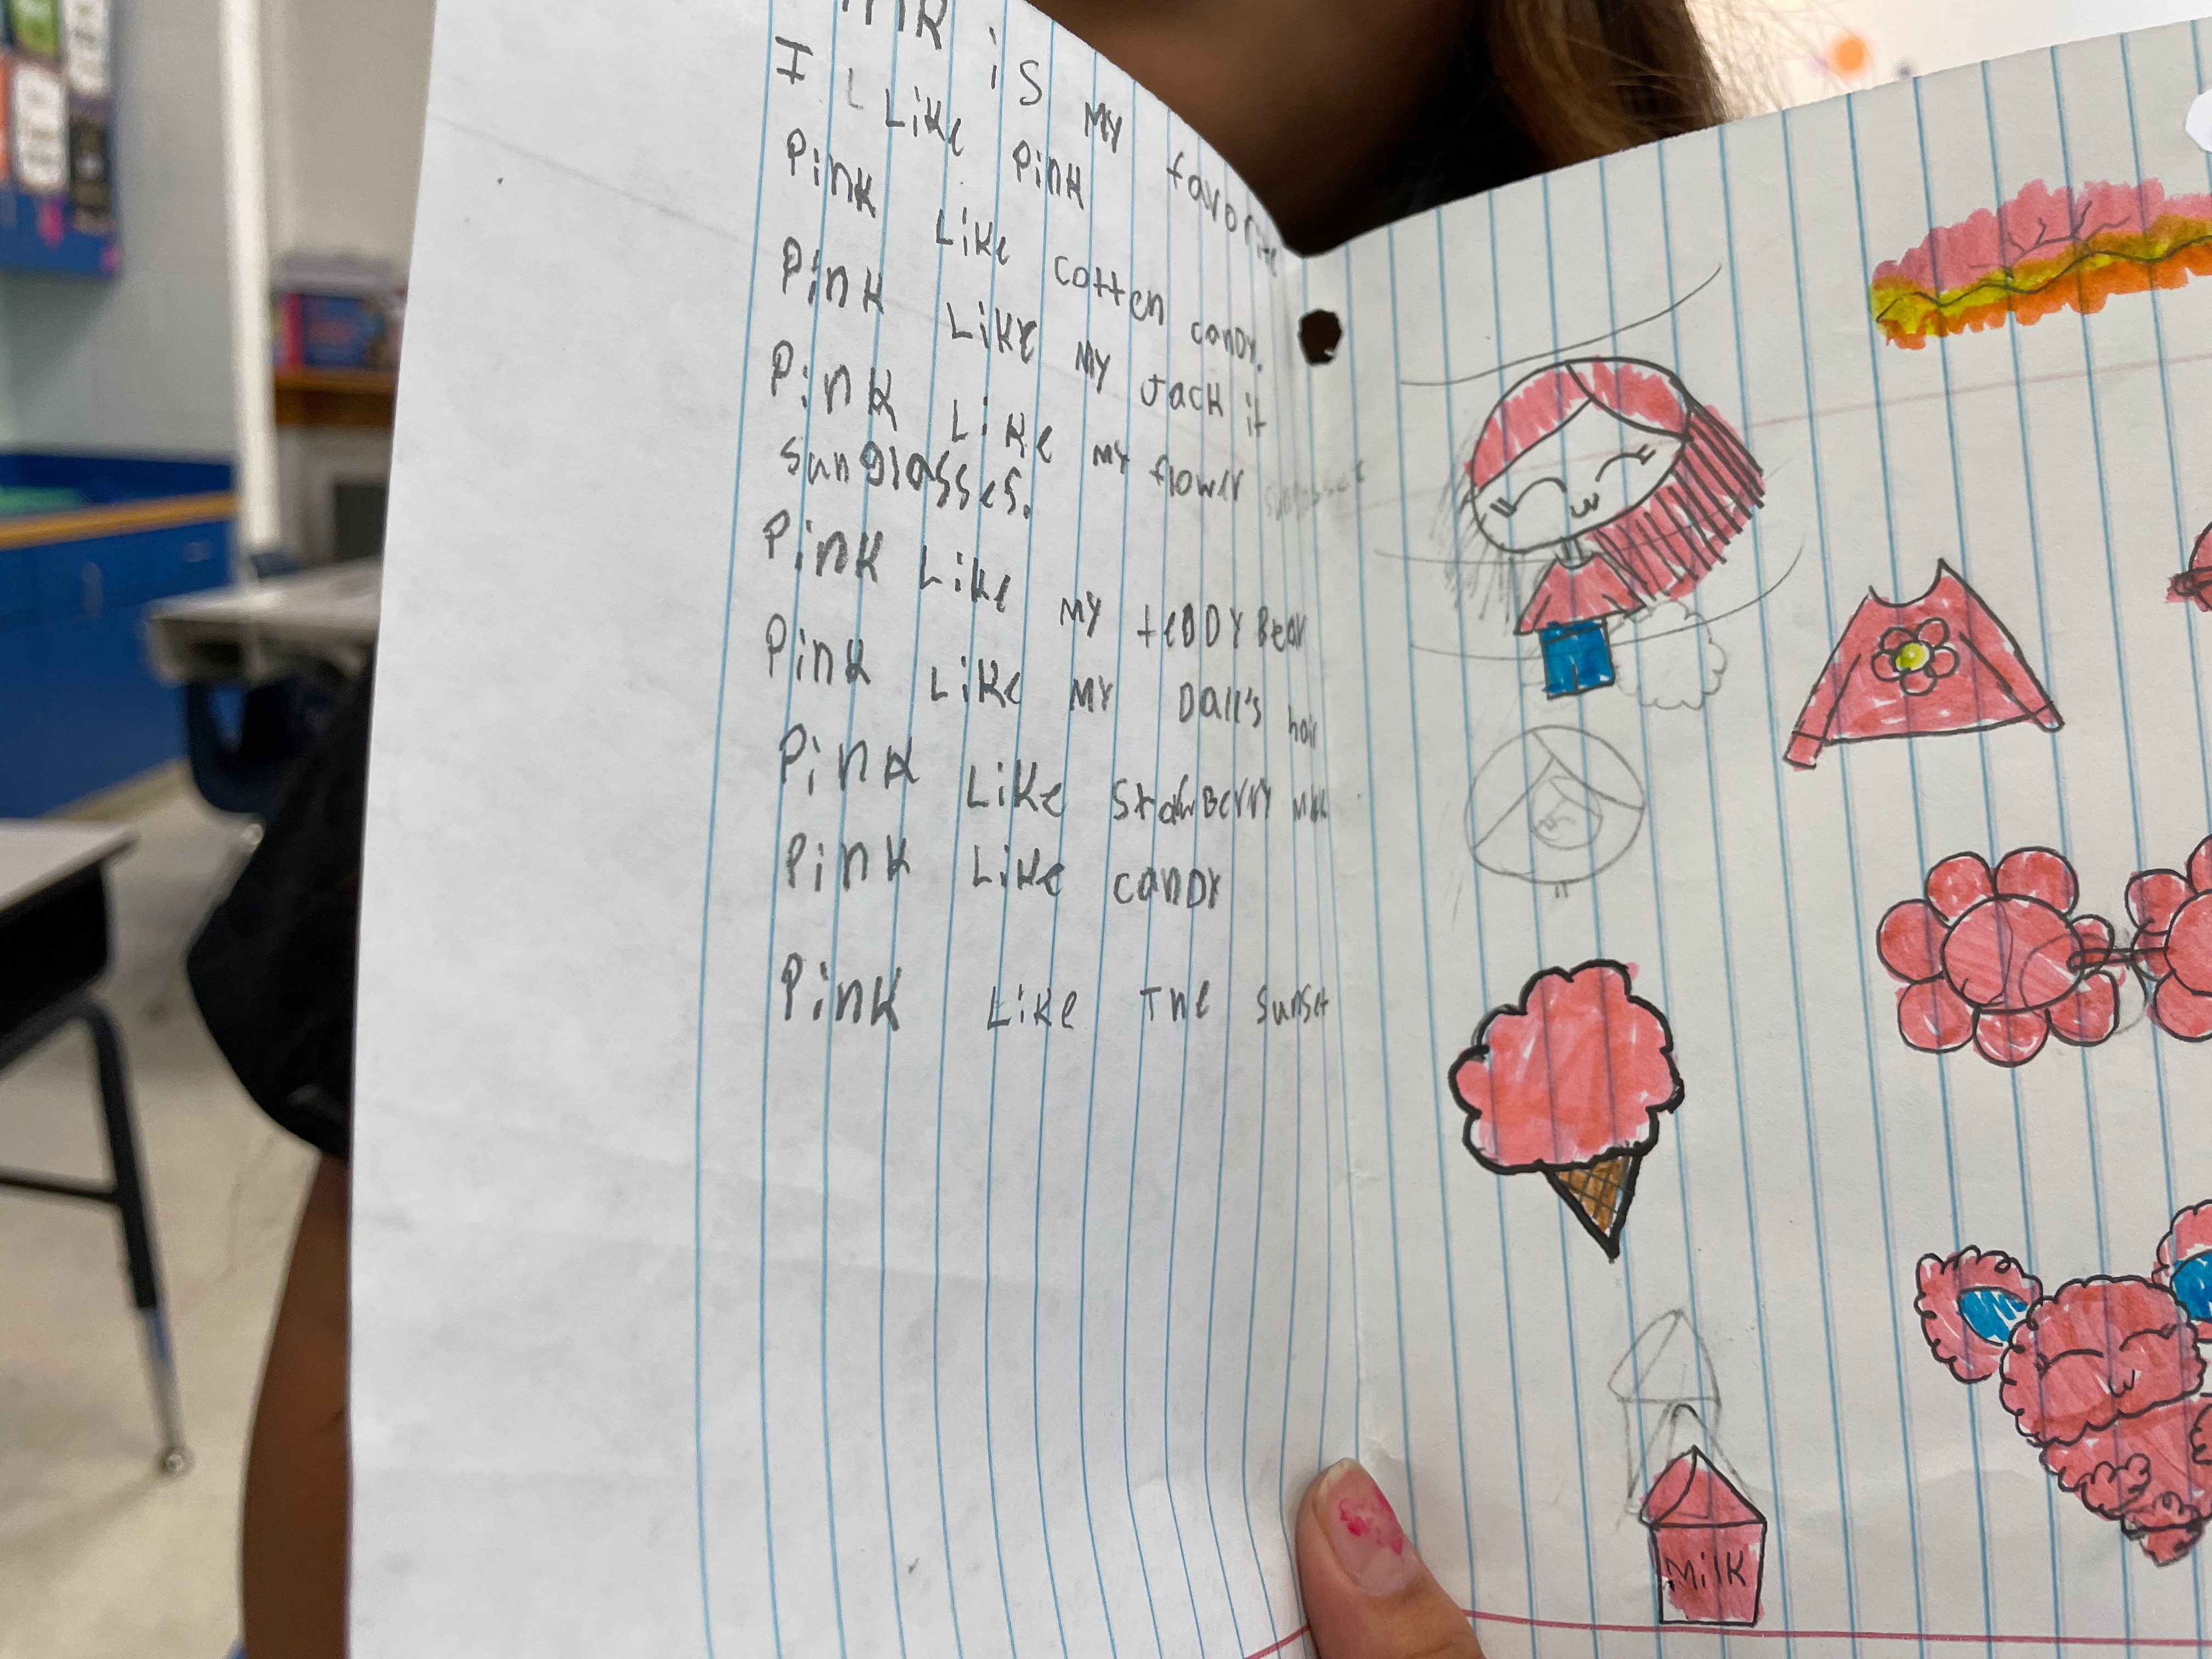 is My favorite
I L Like Pink
Pink Like cotten canDy.
Pink Like My Jack it
Pink Like my flower
sunglasses.
Pink Like MY teDDY Bear
Pink Like MY Dall's hair
Pink Like StrawBerry Milk
Pink Like canDy
Pink Like The sunset
Milk